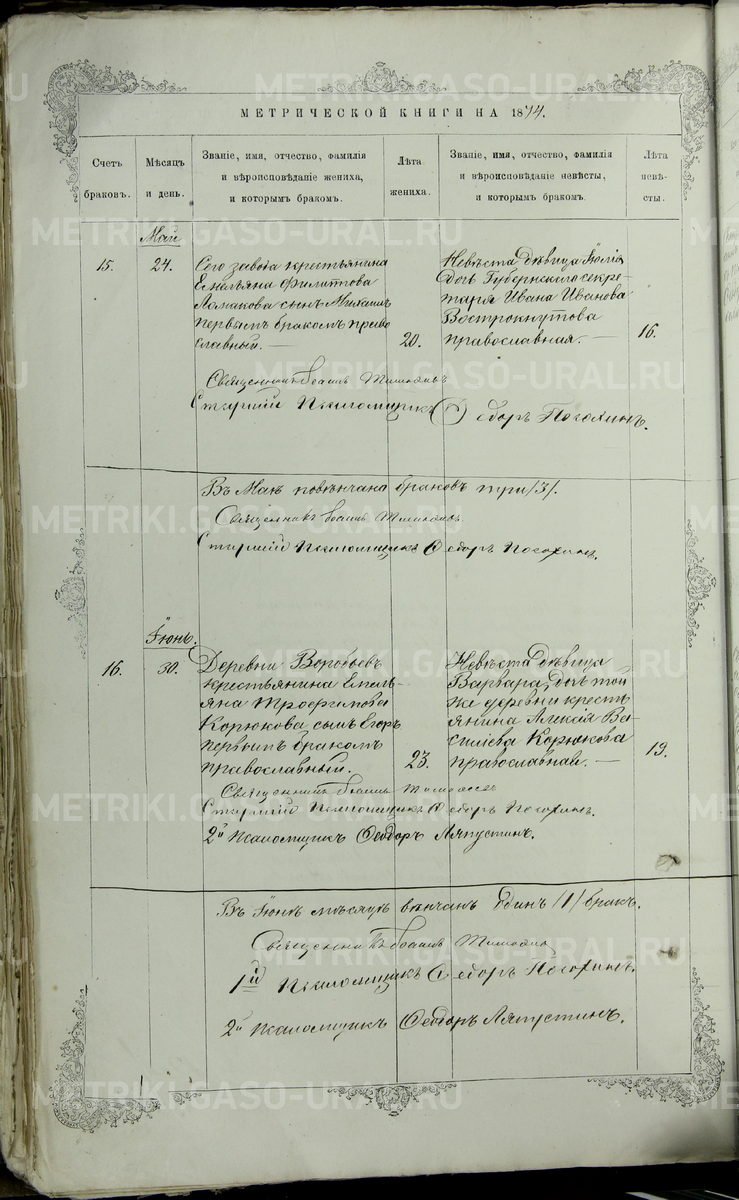 МЕТРИЧЕСКОЙ КНИГИ НА 1874.
Счетъ браковъ.
Мѣсяцъ и день.
Званіе, имя, отчество, фамилія
и вѣроисповѣданіе жениха,
и которымъ бракомъ.
Лѣта жениха.
Званіе, имя, отчество, фамилія
и вѣроисповѣданіе невѣсты,
и которымъ бракомъ.
Лѣта невѣсты.
Май
15.
24.
Сего завода крестьянина
Емельяна Филиппова
сынъ Михаилъ
первымъ бракомъ право
славный.
20.
Невѣста дѣвица Юлія
дочь Губернскаго секре-
таря Ивана Иванова
Вострокнутова
православная.
16.
Священникъ
Старшій Псаломщикъ Ѳедоръ Погохинъ.
Въ Маѣ повѣнчано браковъ три /3/.
Священникъ
Старшій Псаломщикъ Ѳедоръ Погохинъ.
Іюнь.
16.
30.
Деревни
крестьянина Емель-
яна Трофимова
Корюкова сынъ Егоръ
первымъ бракомъ
православный.
23.
Невѣста дѣвица
Варвара, дочь той
же деревни кресть
янина Алексія Ва-
сильева Корюкова
православная.
19.
Священникъ
Старшій Псаломщикъ Ѳедоръ Погохинъ.
2й Псаломщикъ Ѳеодоръ Ляпустинъ.
Въ Іюнѣ мѣсяцѣ вѣнчанъ одинъ /1/ бракъ.
Священникъ
1й Псаломщикъ Ѳедоръ Погохинъ.
2й Псаломщикъ Ѳеодоръ Ляпустинъ.
METRIKI.GASO-URAL.RU